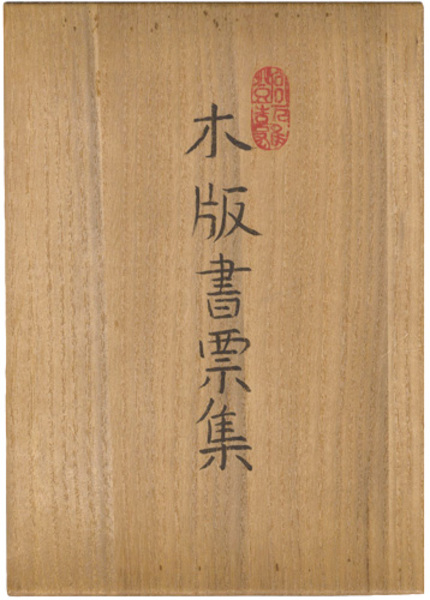 木版書票集